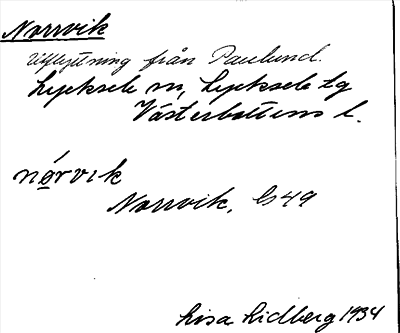 Norrvik
Utflyttning från Paulund.
Lycksele sn, Lycksele lg
Västerbottens l.
nórvik
Norrvik, G49
Lisa Lidberg 1934